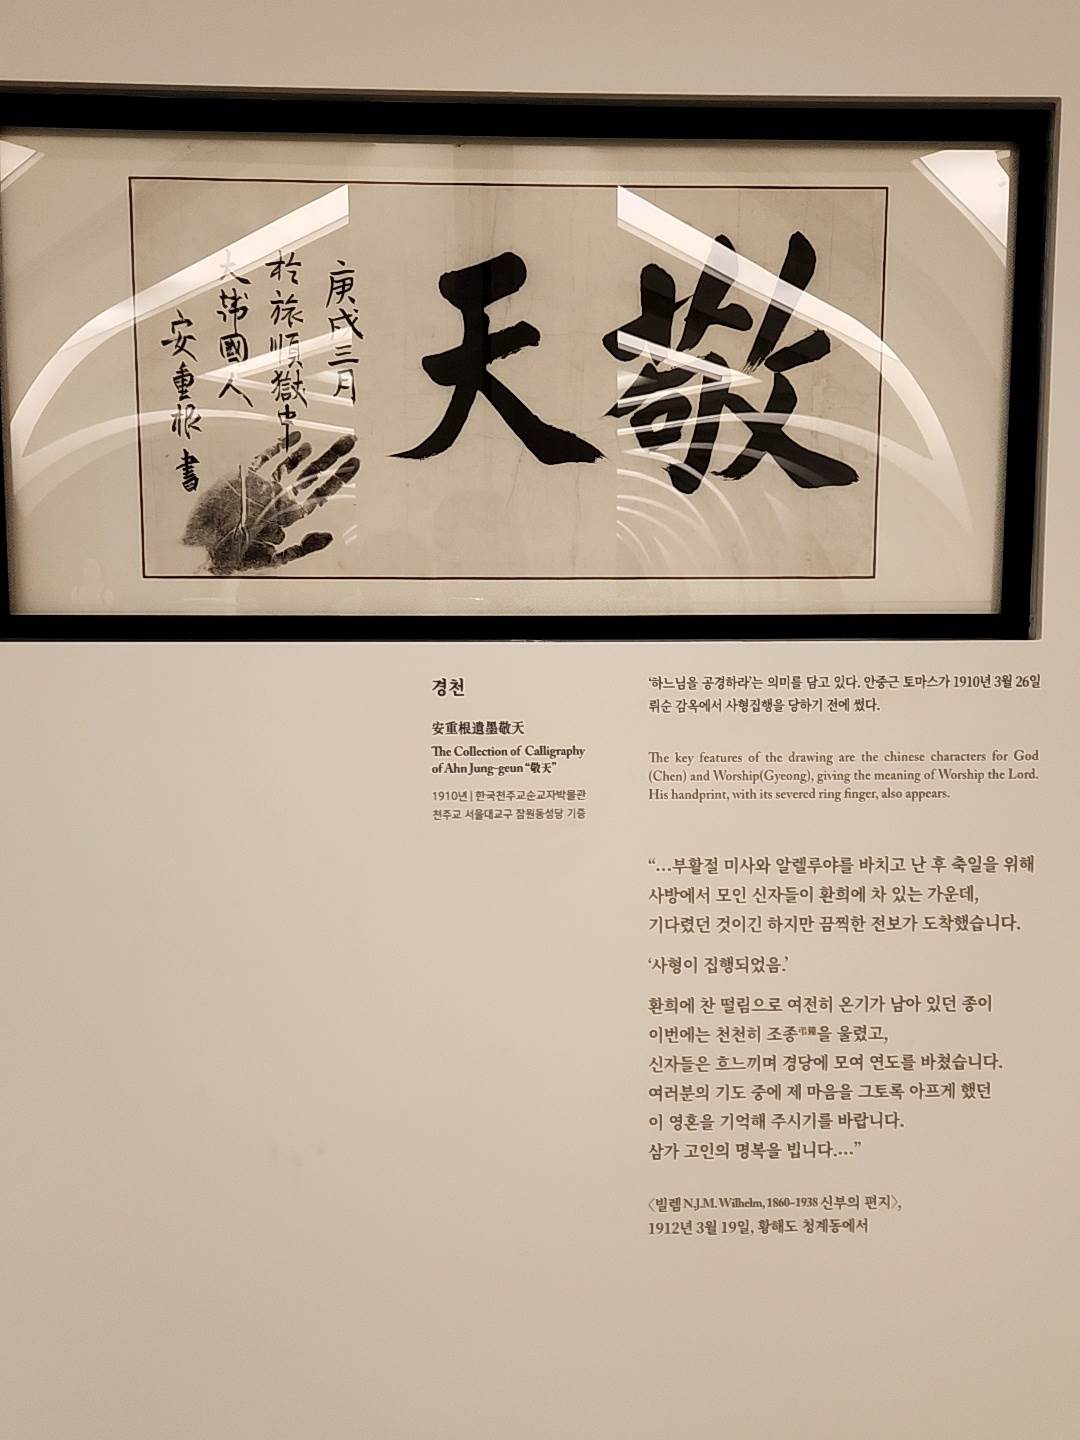 敬天
庚戌三月
於旅順獄中
大韓國人
安重根書
경천
安重根遺墨敬天
The Collection of Calligraphy
of Ahn Jung-geun “敬天”
1910년 | 한국천주교순교자박물관
천주교 서울대교구 잠원동성당 기증
‘하느님을 공경하라’는 의미를 담고 있다. 안중근 토마스가 1910년 3월 26일
뤼순 감옥에서 사형집행을 당하기 전에 썼다.
The key features of the drawing are the chinese characters for God
(Chen) and Worship(Gyeong), giving the meaning of Worship the Lord.
His handprint, with its severed ring finger, also appears.
“…부활절 미사와 알렐루야를 바치고 난 후 축일을 위해
사방에서 모인 신자들이 환희에 차 있는 가운데,
기다렸던 것이긴 하지만 끔찍한 전보가 도착했습니다.
‘사형이 집행되었음.’
환희에 찬 떨림으로 여전히 온기가 남아 있던 종이
이번에는 천천히 조종弔鐘을 울렸고,
신자들은 흐느끼며 경당에 모여 연도를 바쳤습니다.
여러분의 기도 중에 제 마음을 그토록 아프게 했던
이 영혼을 기억해 주시기를 바랍니다.
삼가 고인의 명복을 빕니다.…”
〈빌렘 N.J.M. Wilhelm, 1860-1938 신부의 편지〉,
1912년 3월 19일, 황해도 청계동에서